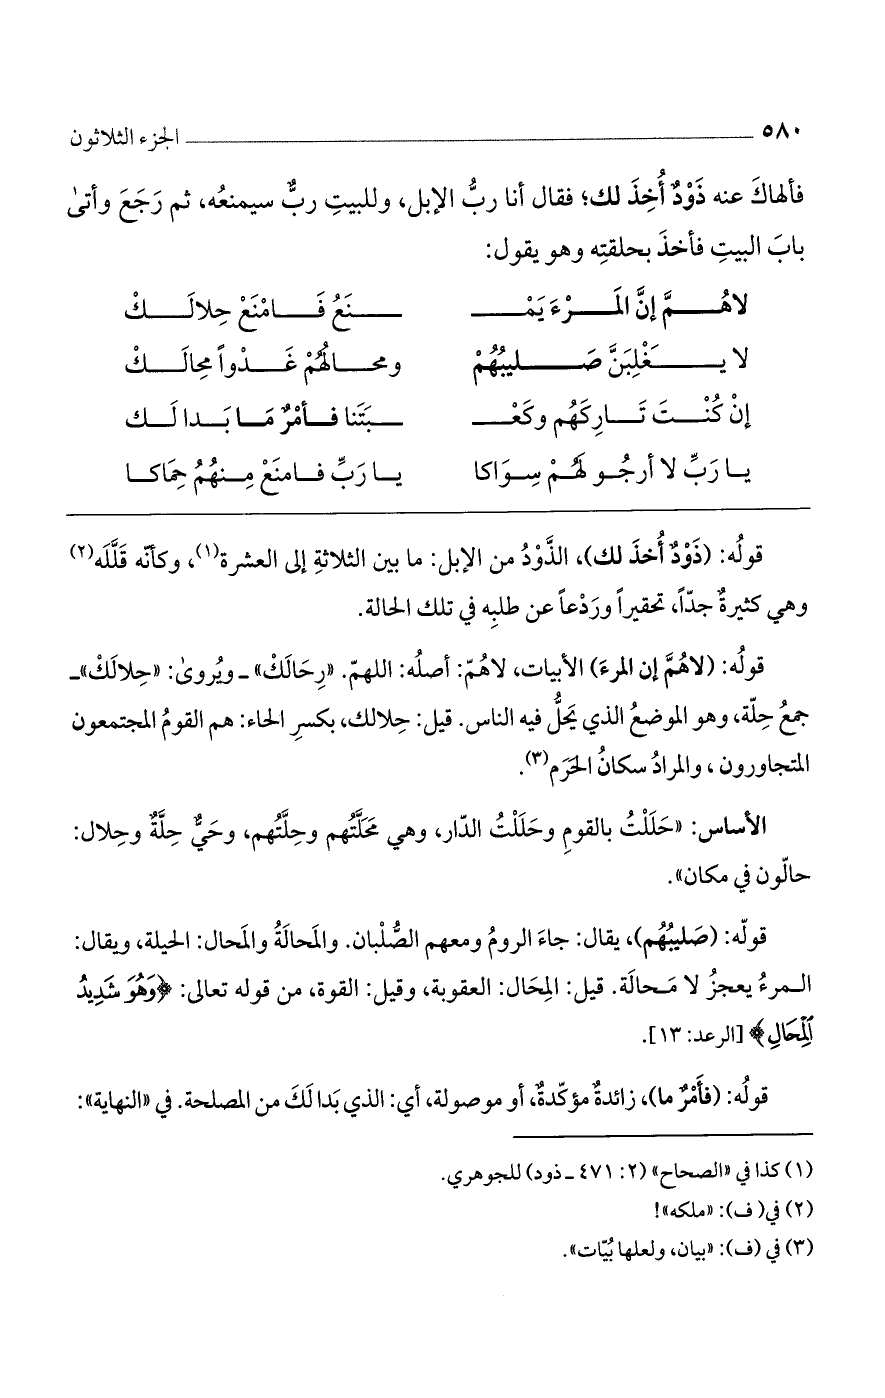 ٥٨٠ ــــــــــ الجزء الثلاثون
فألهاكَ عنه ذَوْدٌ أُخِذَ لك؛ فقال أنا ربُّ الإبل، وللبيتِ ربٌّ سيمنعُه، ثم رَجَعَ وأتىٰ
بابَ البيتِ فأخذَ بحلقتِه وهو يقول:
لاهُـــمَّ إنَّ المَـــرْءَ يَمْـــ ـــنَعُ فَـــامْنَعْ حِلالَـــكْ
لا يـــغْلِبَنَّ صَـــليبُهُمْ ومحـــالُهُمْ غَـــدْواً مِحالَـــكْ
إنْ كُنْـــتَ تَـــارِكَهُم وكَعْـــ ـــبَتَنا فـــأمْرٌ مَـــا بَـــدا لَـــك
يـــا رَبِّ لا أرجُـــو لَهُـــمْ سِـــوَاكا يـــا رَبِّ فـــامنَعْ مِـــنهُمُ حِمَاكـــا
قولُه: (ذَوْدٌ أُخذَ لك)، الذَّوْدُ من الإبل: ما بين الثلاثةِ إلى العشرة(١)، وكأنّه قَلَّلَه(٢)
وهي كثيرةٌ جدّاً، تحقيراً ورَدْعاً عن طلبِه في تلك الحالة.
قولُه: (لاهُمَّ إن المرءَ) الأبيات، لاهُمّ: أصلُه: اللهمّ. «رِحَالَكْ» ـ ويُروىٰ: «حِلالَكْ»ـ
جمعُ حِلّة، وهو الموضعُ الذي يَحلُّ فيه الناس. قيل: حِلالك، بكسرِ الحاء: هم القومُ المجتمعون
المتجاورون ، والمرادُ سكانُ الحَرَم(٣).
الأساس: «حَلَلْتُ بالقومِ وحَلَلْتُ الدّار، وهي مَحَلَّتُهم وحِلَّتُهم، وحَيٌّ حِلَّةٌ وحِلال:
حالّون في مكان».
قولُه: (صَليبُهُم)، يقال: جاءَ الرومُ ومعهم الصُّلْبان. والمَحالَةُ والمَحال: الحيلة، ويقال:
الـمرءُ يعجزُ لا مَـحالَة. قيل: المِحَال: العقوبة، وقيل: القوة، من قوله تعالى: ﴿وَهُوَ شَدِيدُ
ٱلْمِحَالِ﴾ [الرعد: ١٣].
قولُه: (فأَمْرٌ ما)، زائدةٌ مؤكّدةٌ، أو موصولة، أي: الذي بَدا لَكَ من المصلحة. في «النهاية»:
(١) كذا في «الصحاح» (٢: ٤٧١ ـ ذود) للجوهري.
(٢) في( ف): «ملكه»!
(٣) في (ف): «بيان، ولعلها بُيّات».